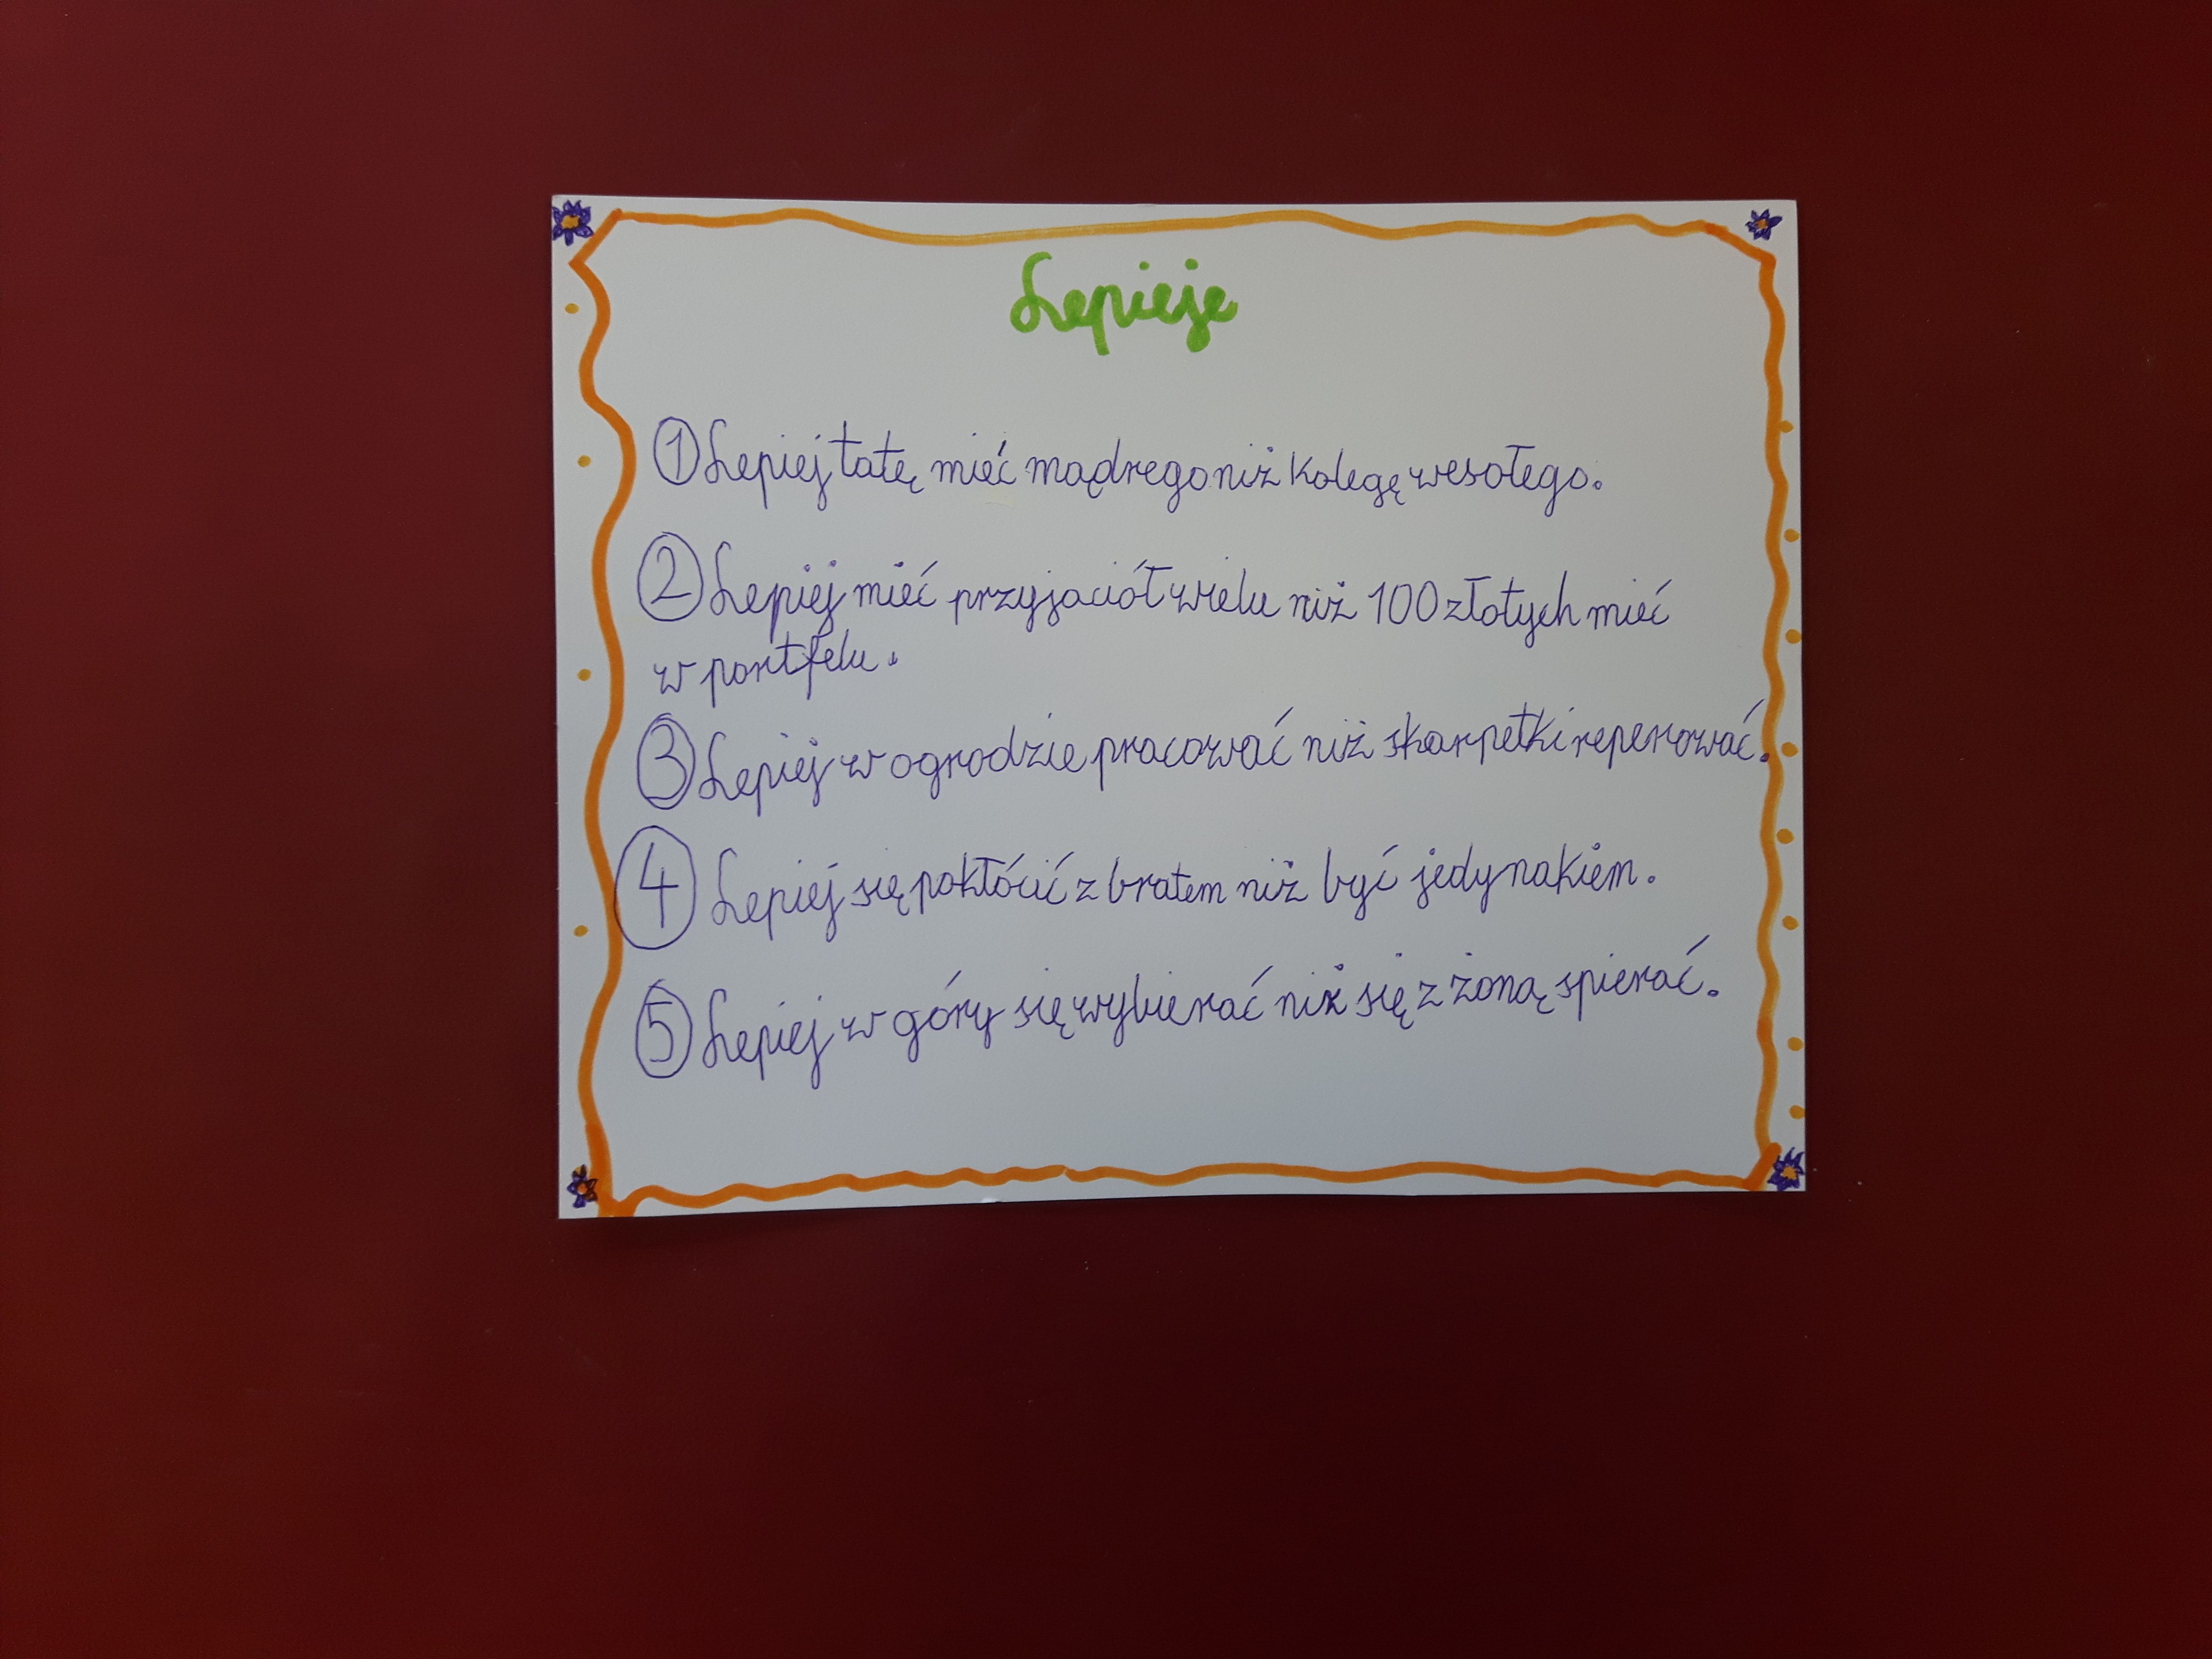 Lepieje
① Lepiej tatę mieć mądrego niż kolegę wesołego.
② Lepiej mieć przyjaciół wielu niż 100 złotych mieć
w portfelu.
③ Lepiej w ogrodzie pracować niż skarpetki reperować.
④ Lepiej się pokłócić z bratem niż być jedynakiem.
⑤ Lepiej w góry się wybierać niż się z żoną spierać.